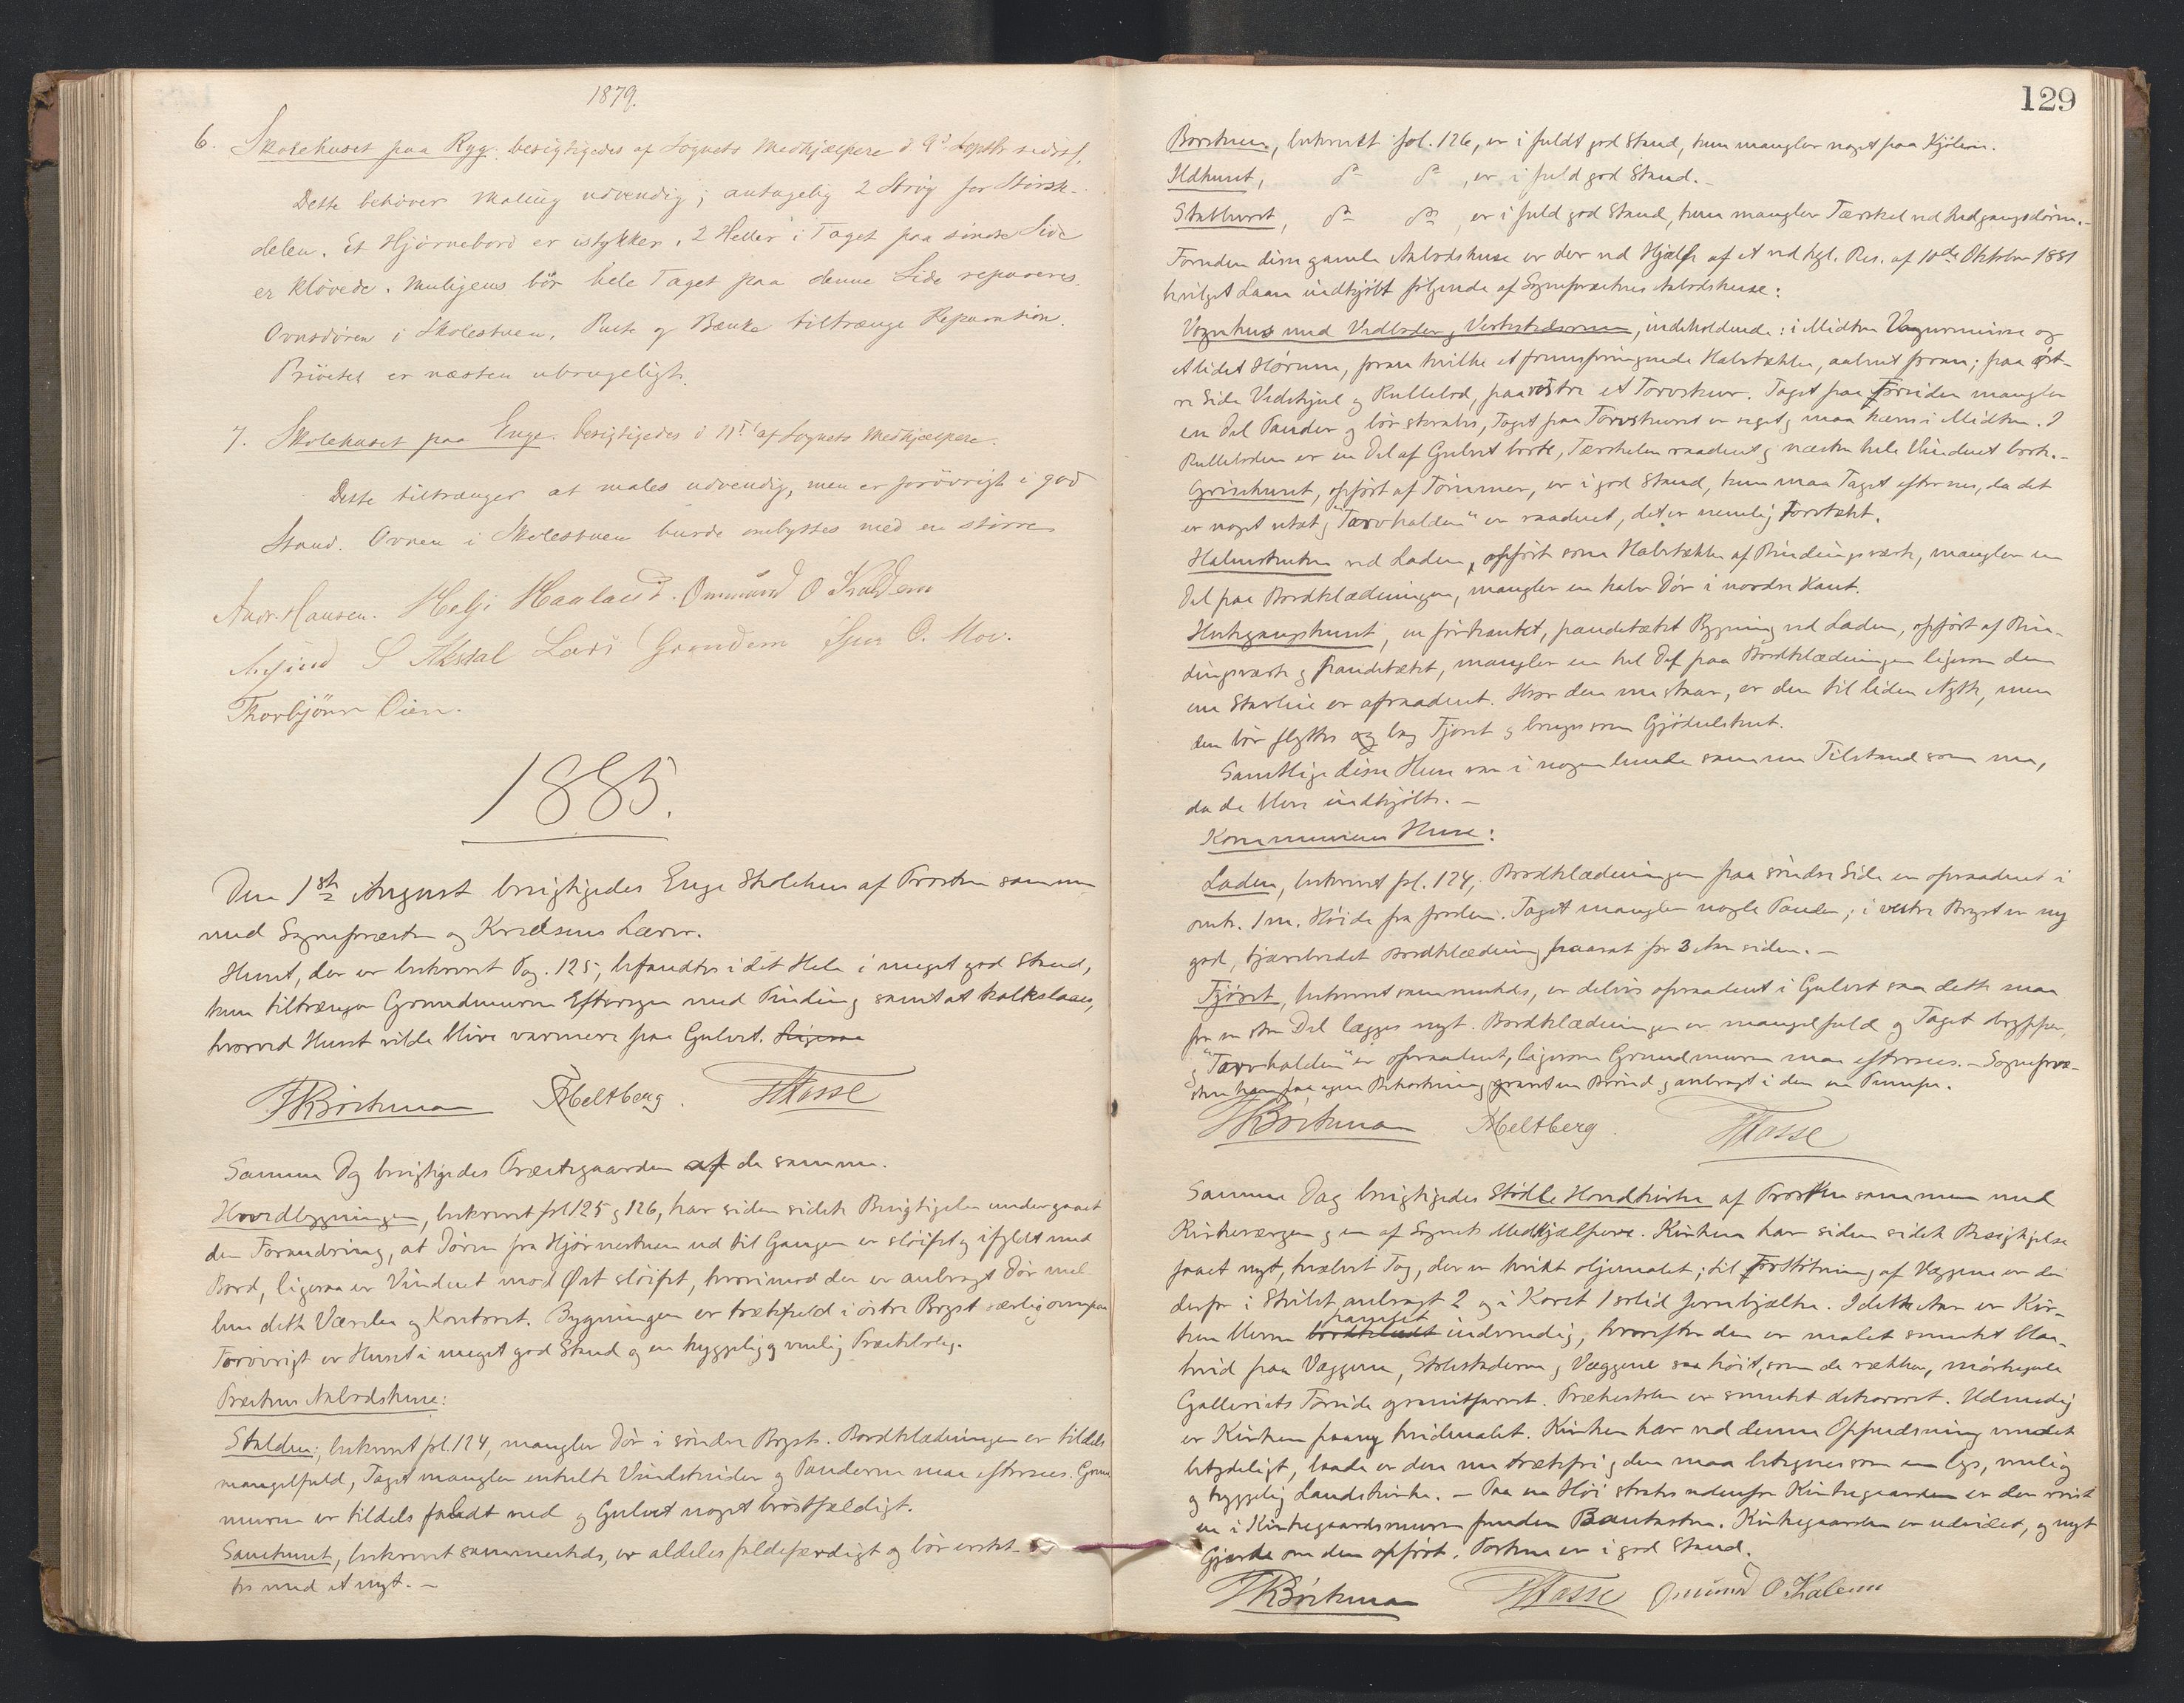 1879.
6. Skolehuset paa Ryg. besigtigedes af Sognets Medhjælpere d 9d Septbr sidstl.
Dette behøver Maling udvendig; antagelig 2 Strøg for Størsk-
delen. Et Hjørnebord er istykker. 2 Heller i Taget paa søndre Side
er kløvede. Muligens bør hele Taget paa denne Side repareres.
Ovnsdøren i Skolestuen. Pulte og Bænke tiltrænge Reparation.
Privetet er næsten ubrugeligt.
7. Skolehuset paa Enge. besigtigedes d 11t af Sognets Medhjælpere.
Dette tiltrænger at males udvendig, men er forøvrigt i god
Stand. Ovnen i Skolestuen burde ombyttes med en større
Andr. Hansen. Helge Haaland. Ommund O Kalem
S Aksdal Lars Grindem Sjur O. Mov.
Thorbjørn Øien.
1885.
Den 1ste August besigtigedes Enge Skolehus af Provsten sammen
med Sognepræsten og Kredsens Lærer.
Huset, der er beskrevet Pag. 125, befandtes i det Hele i meget god Stand,
kun tiltrænger Grundmuren Eftersyn med Pinding samt at kalkslaaes,
hvorved Huset vilde blive varmere paa Gulvet. Ligesaa
Børkman Meltberg. Hasse
Samme Dag besigtigedes Præstegaarden af de samme.
Hovedbygningen, beskrevet fol 125 og 126, har siden sidste Besigtigelse undergaaet
den Forandring, at Døren fra Hjørnestuen ud til Gangen er sløifet og ifyldt med
Bord, ligesaa er Vinduet mod Øst sløifet, hvorimod der er anbragt Dør mel-
lem dette Værelse og Kontoret. Bygningen er trækfuld i østre Bryst særlig ovenpaa
Forøvrigt er Huset i meget god Stand og en hyggelig og venlig Præstebolig.
Præstens Aabodshuse:
Stalden; beskrevet fol. 124, mangler Dør i søndre Bryst. Bordklædningen er tildels
mangelfuld, Taget mangler enkelte Vindskeider og Panderne maa eftersees. Grund
muren er tildels faldt ned og Gulvet noget brøstfældigt.
Sauehuset, beskrevet sammesteds, er aldeles faldefærdigt og bør erstat-
tes med et nyt. —
129
Borstuen, beskrevet fol. 126, er i fuldt god Stand, kun mangler noget paa Kjølen.
Ildhuset, do do, er i fuld god Stand. —
Stabburet, do do, er i fuld god Stand, kun mangler Tærskel ved Indgangsdøren. —
Foruden disse gamle Aabodshuse er der ved Hjælp af et ved kgl. Res. af 10de Oktober 1881
bevilget Laan indkjøbt følgende af Sognepræstens Aabodshuse:
Vognhus med Vedbod og Verkstedsrum, indeholdende: i Midten Vognremisse og
et lidet Hørum, foran hvilke et fremspringende Halvtække, aabent foran; paa øst-
re Side Vedskjul og Rullebod, paa vestre et Torvskur. Taget paa Forsiden mangler
en Del Pander og bør skrabes, Taget paa Torvskuret er seget og maa hæves i Midten. I
Rulleboden er en Del af Gulvet borte, Tærskelen raadnet og næsten hele Vinduet bort. —
Grisehuset, opført af Tømmer, er i god Stand, kun maa Taget eftersees, da det
er noget utæt og "Torvholden" er raadnet, det er nemlig Torvtækt.
Halmskuten ved Laden, opført som Halvtække af Bindingsværk, mangler en
Del paa Bordklædningen, mangler en halv Dør i nordre Kant.
Hestegangshuset, en firkantet, pandetækt Bygning ved Laden, opført af Bin-
dingsværk og pandetækt, mangler en hel Del paa Bordklædningen ligesom den
ene Stavlinie er afraadnet. Hvor den nu staar, er den til liden Nytte, men
den bør flyttes og bag Fjøset og bruges som Gjødselskut.
Samtlige disse Huse var i nogenlunde samme Tilstand som nu,
da de blev indkjøbt. —
Kommunens Huse:
Laden, beskrevet fol. 124. Bordklædningen paa søndre Side er opraadnet i
omtr. 1 m. Høide fra Jorden. Taget mangler nogle Pander; i vestre Bryst er ny
god, tjærebredet Bordklædning paasat for 3 Aar siden. —
Fjøset, beskrevet sammesteds, er delvis opraadnet i Gulvet saa dette maa
for en stor Del lægges nyt. Bordklædningen er mangelfuld og Taget drypper,
og "Torvholden" er opraadnet, ligesom Grundmuren maa eftersees. — Sognepræ-
sten har paa egen Bekostning gravet en Brønd og anbragt i den en Pumpe.
Børkman Meltberg. Hasse
Samme Dag besigtigedes Stødle Hovedkirke af Provsten sammen med
Kirkeværgen og en af Sognets Medhjælpere. Kirken har siden sidste Besigtigelse
faaet nyt, hvælvet Tag, der er hvidt oljemalet; til Forstøtning af Væggene er der
derfor i Skibet anbragt 2 og i Koret 1 solid Jernbjælke. I dette Aar er Kir-
panelet
ken bleven bordklædt indvendig, hvorefter den er malet smukt blaa-
hvid paa Væggene, Stolestaderne og Væggene saa høit, som de rækker, mørkegule
Galleriets Forside granitfarvet. Prækestolen er smukt dekoreret. Udvendig
er Kirken paany hvidmalet. Kirken har ved denne Oppudsning vundet
betydeligt, baade er den nu trækfri og den maa betegnes som en lys, venlig
og hyggelig Landskirke. — Paa en Høi straks udenfor Kirkegaarden er der reist
en i Kirkegaardsmuren funden Bautasten. Kirkegaarden er udvidet, og nyt
Gjærde om den opført. Portene er i god Stand.
Børkman Hasse Omund O Kalem